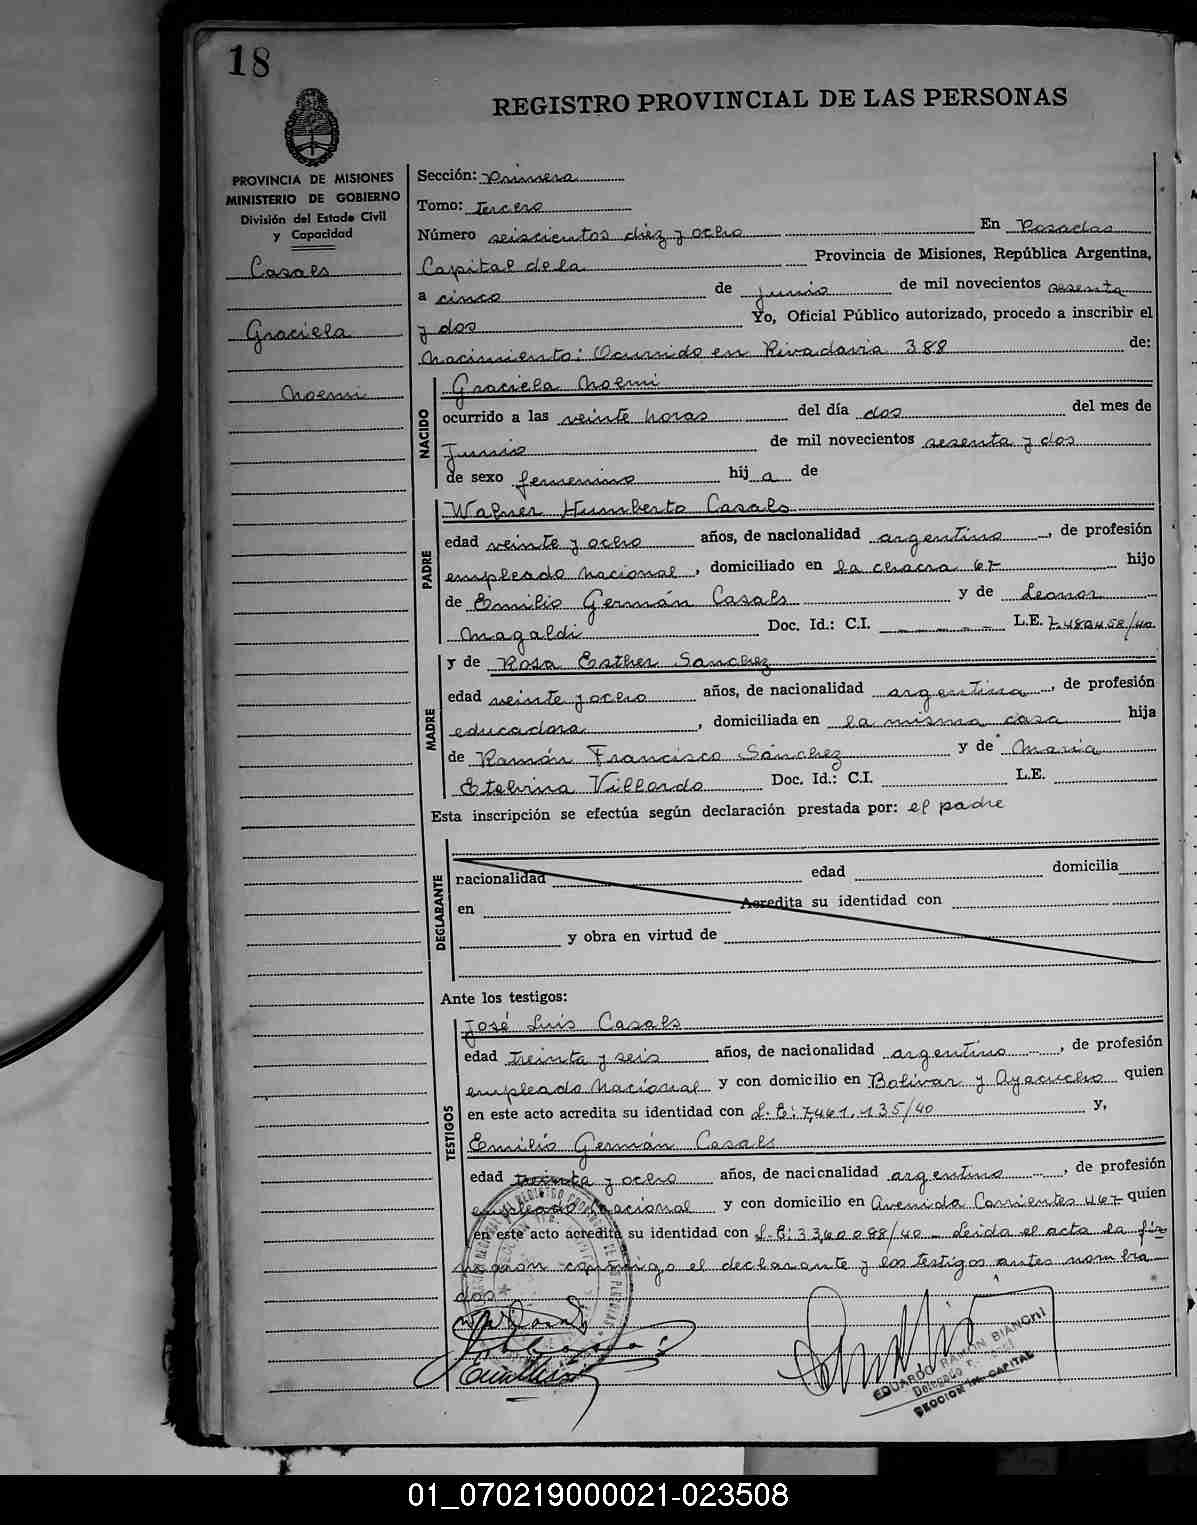 18
REGISTRO PROVINCIAL DE LAS PERSONAS
PROVINCIA DE MISIONES
MINISTERIO DE GOBIERNO
División del Estado Civil
y Capacidad
Casals
Graciela
Noemi
Sección: Primera
Tomo: Tercero
Número seiscientos diez y ocho En Posadas
Capital de la Provincia de Misiones, República Argentina,
a cinco de junio de mil novecientos sesenta
y dos Yo, Oficial Público autorizado, procedo a inscribir el
Nacimiento: Ocurrido en Rivadavia 388 de:
NACIDO
Graciela Noemi
ocurrido a las veinte horas del día dos del mes de
Junio de mil novecientos sesenta y dos
de sexo femenino hij a de
PADRE
Walner Humberto Casals
edad veinte y ocho años, de nacionalidad argentino, de profesión
empleado nacional, domiciliado en la chacra 67 hijo
de Emilio Germán Casals y de Leonor
Magaldi Doc. Id.: C.I. _ _ _ _ _ L.E. 7.480458/40
MADRE
y de Rosa Esther Sanchez
edad veinte y ocho años, de nacionalidad argentina, de profesión
educadora, domiciliada en la misma casa hija
de Ramón Francisco Sánchez y de Maria
Etelvina Villordo Doc. Id.: C.I. L.E.
Esta inscripción se efectúa según declaración prestada por: el padre
DECLARANTE
nacionalidad edad domicilia
en Acredita su identidad con
y obra en virtud de
Ante los testigos:
TESTIGOS
José Luis Casals
edad treinta y seis años, de nacionalidad argentino, de profesión
empleado nacional y con domicilio en Bolivar y Ayacucho quien
en este acto acredita su identidad con L.E: 7,461.135/40 y,
Emilio Germán Casals
edad treinta y ocho años, de nacionalidad argentino, de profesión
empleado nacional y con domicilio en Avenida Corrientes 467 quien
en este acto acredita su identidad con L.E: 3360088/40 _ Leida el acta la fir
maron conmigo el declarante y los testigos antes nombra
dos
EDUARDO RAMON BIANCHI
Delegado
SECCION 1a. CAPITAL
01_070219000021-023508